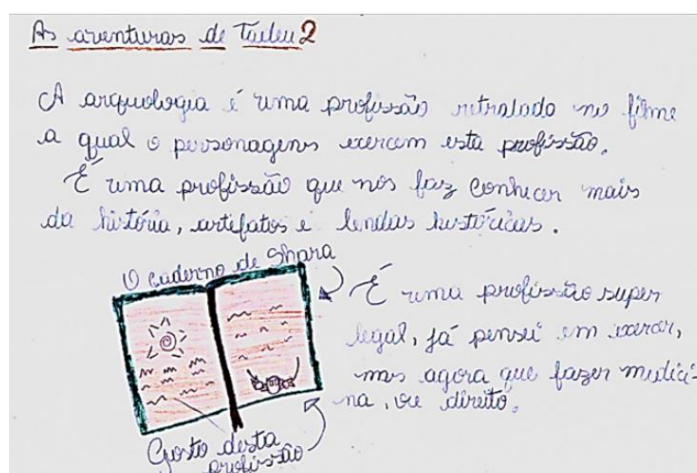 As aventuras de Tadeu 2
A arqueologia é uma profissão retratado no filme
a qual o personagens exercem esta profissão.
É uma profissão que nós faz conhecer mais
da história, artefatos e lendas históricas.
O caderno de Shara
É uma profissão super
legal, já pensei em exercer,
mas agora que fazer medici-
na, ou direito.
Gosto desta
profissão